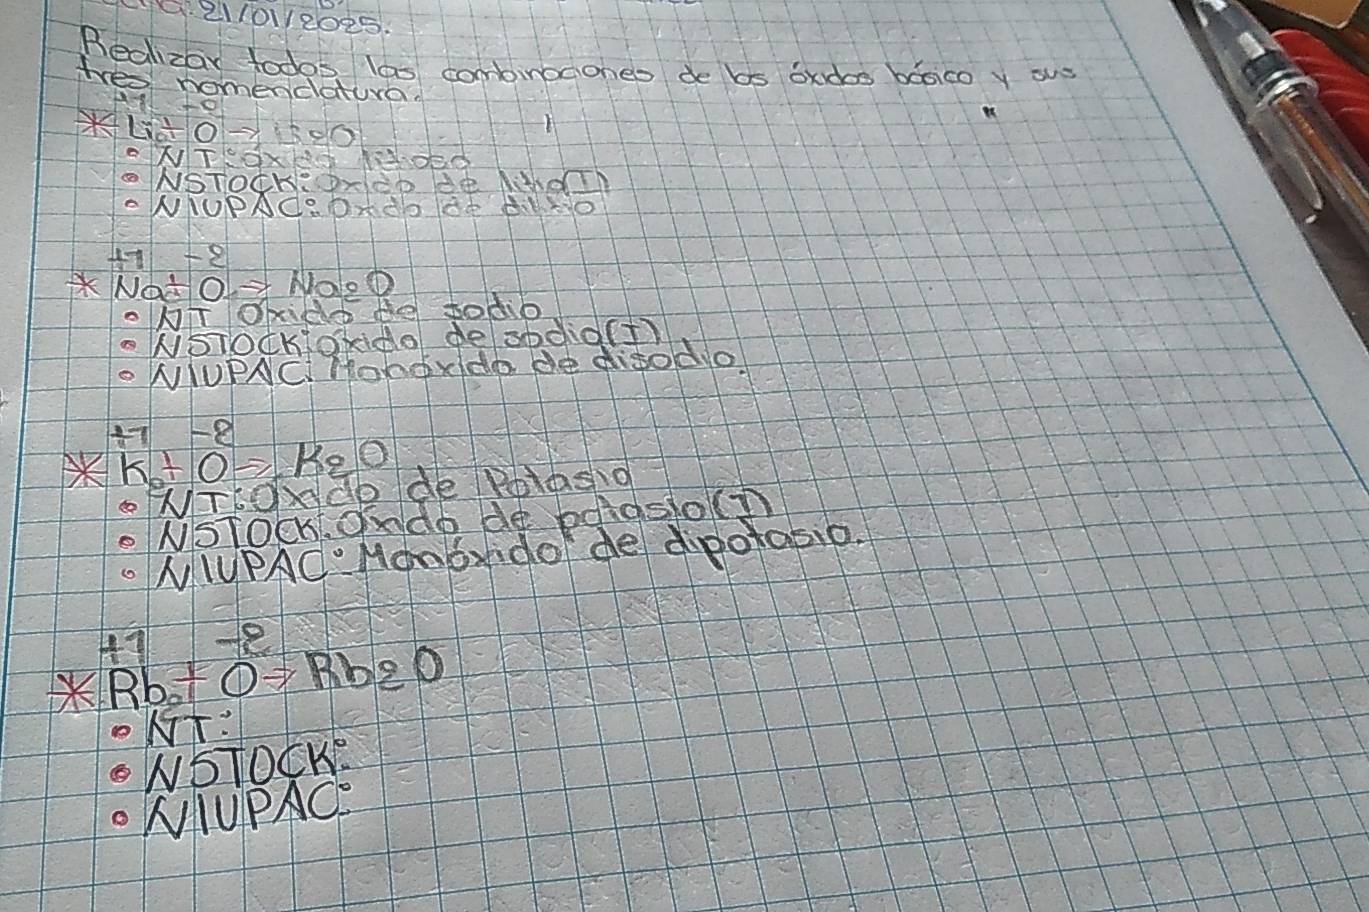 21/01/2025.
Realizar todas las combinaciones de los óxidos básico y sus
tres nomenclatura.
+1 -2
* Li + O → Li2O
• NT: oxido litioso
• NSTOCK: oxido de litio(I)
• NIUPAC: oxido de dilitio
+1 -2
* Na + O → Na2O
• NT Oxido de sodio
• NSTOCK: oxido de sodio(I)
• NIUPAC: Monóxido de disodio.
+1 -2
* K + O → K2O
• NT: Oxido de Potasio
• NSTOCK: Oxido de potasio(I)
• NIUPAC: Monóxido de dipotasio.
+1 -2
* Rb + O → Rb2O
• NT:
• NSTOCK:
• NIUPAC: